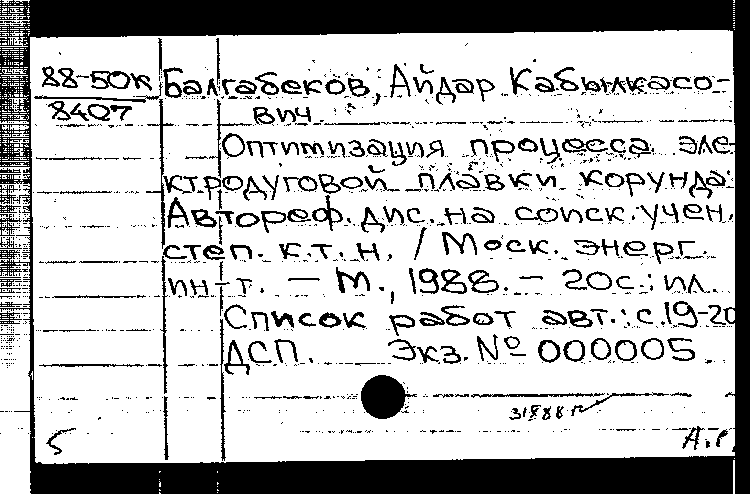 88-50к Балгабеков, Айдар Кабылкасо-
8407 вич
Оптимизация процесса эле-
ктродуговой плавки корунда:
Автореф. дис. на соиск. учен.
степ. к.т.н. / Моск. энерг.
ин-т. — М., 1988. — 20с.: ил.
Список работ авт.: с.19-20
ДСП. Экз. № 000005
5 А.Р.